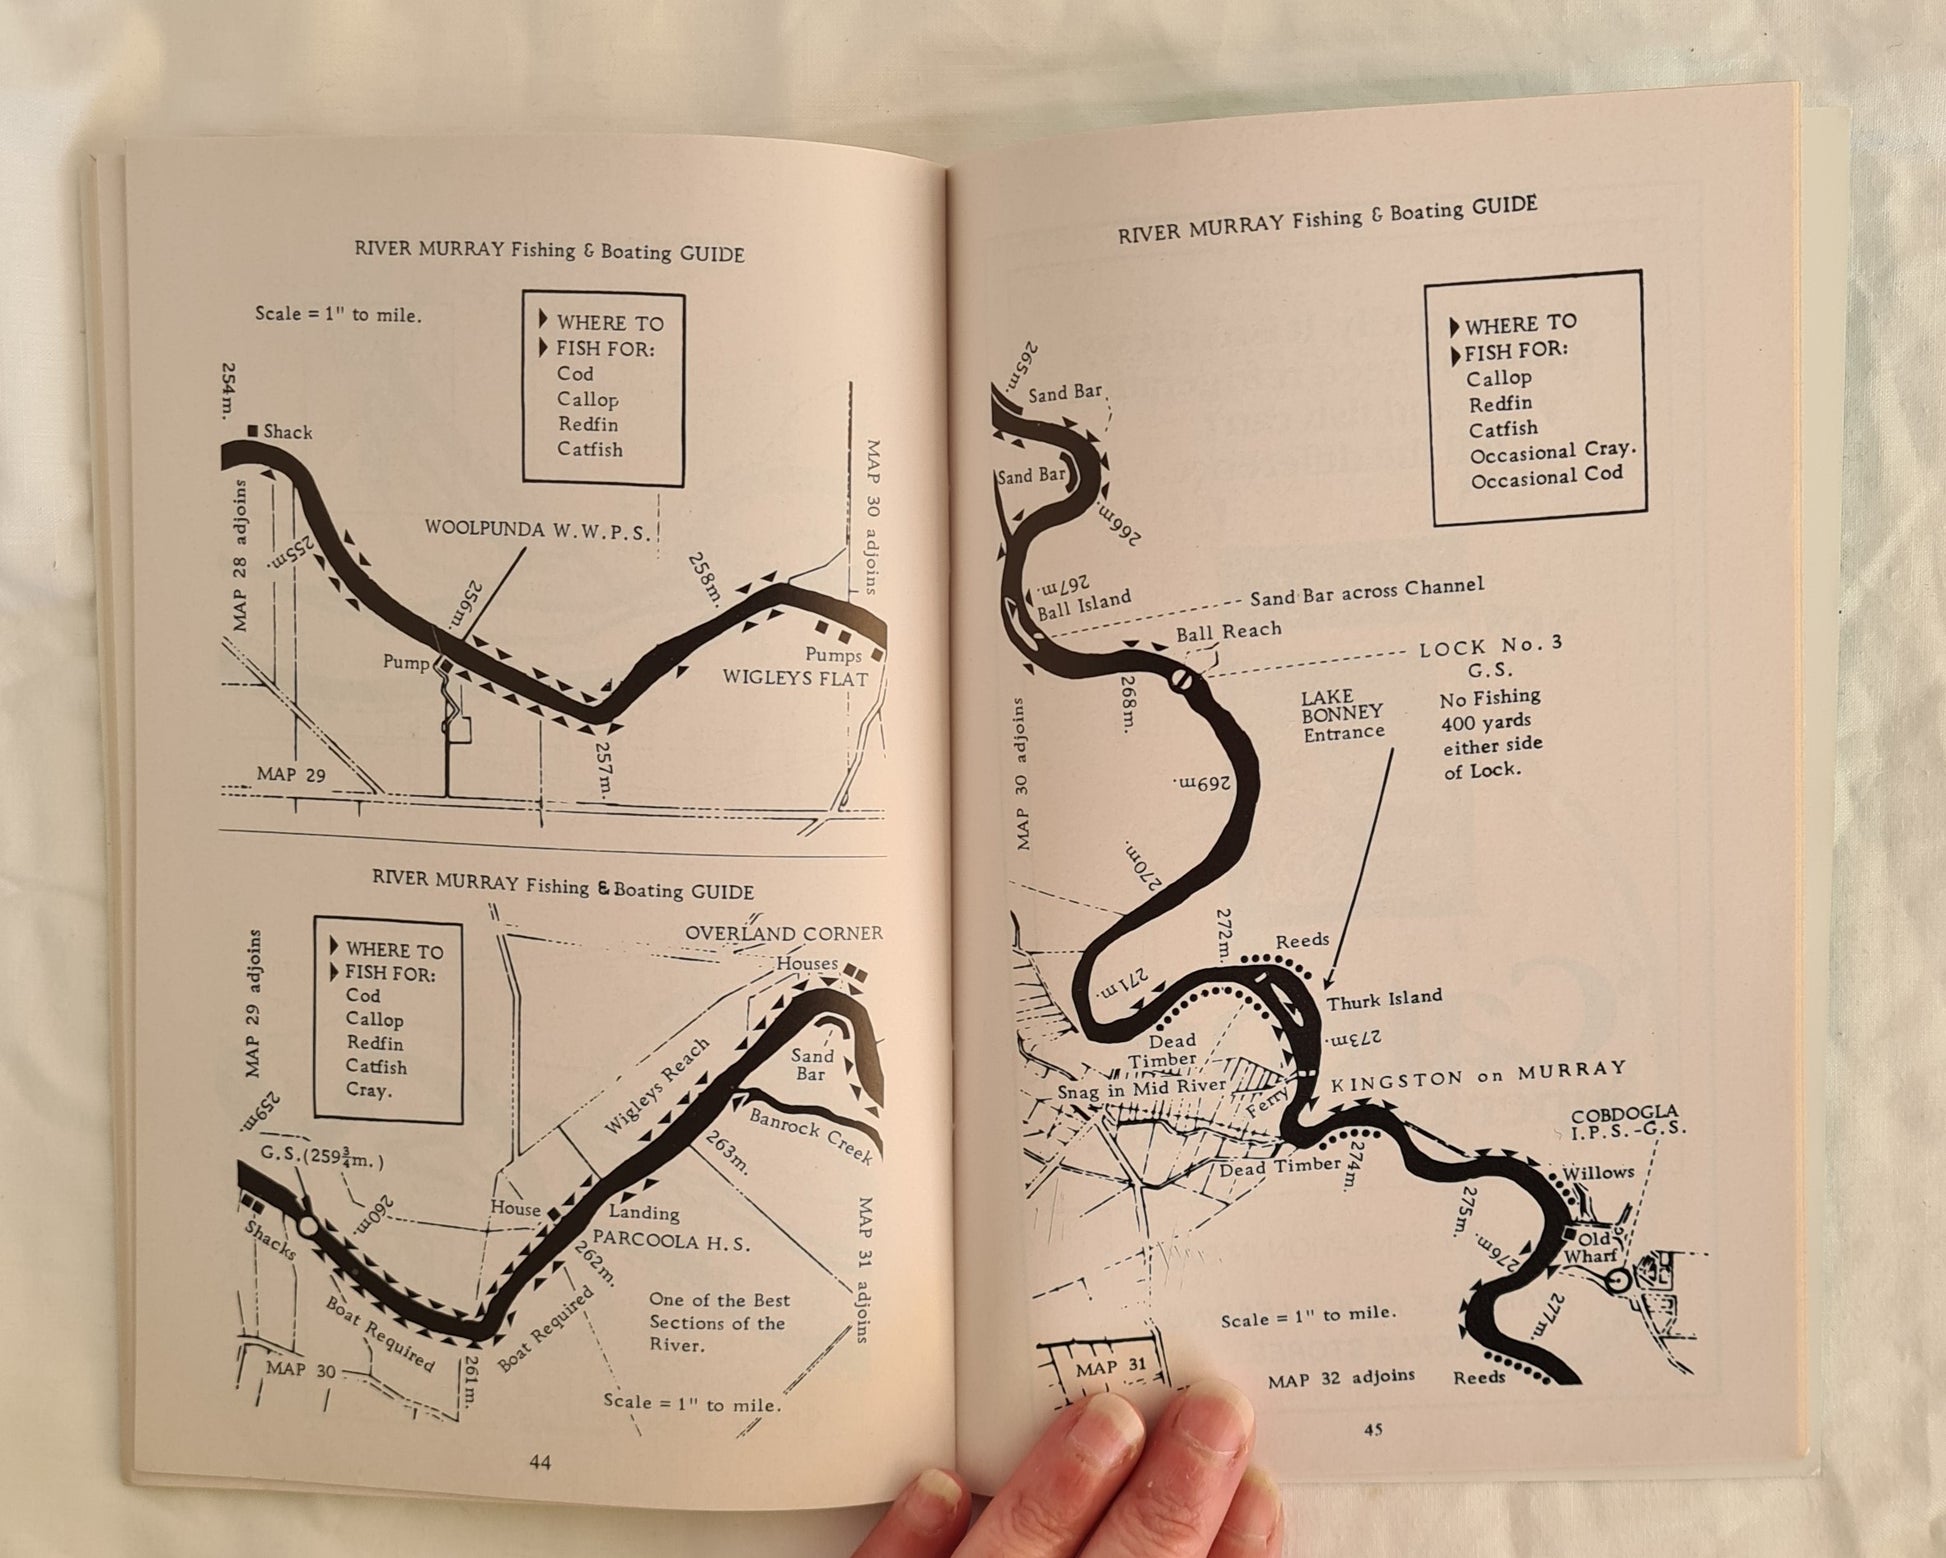 RIVER MURRAY Fishing & Boating GUIDE
Scale = 1" to mile.
WHERE TO
FISH FOR:
Cod
Callop
Redfin
Catfish
254m.
Shack
MAP 28 adjoins
255m.
WOOLPUNDA W.W.P.S.
256m.
258m.
MAP 30 adjoins
Pump
Pumps
WIGLEYS FLAT
257m.
MAP 29
RIVER MURRAY Fishing & Boating GUIDE
WHERE TO
FISH FOR:
Cod
Callop
Redfin
Catfish
Cray.
OVERLAND CORNER
Houses
MAP 29 adjoins
Sand
Bar
Wigleys Reach
Banrock Creek
259m.
G.S.(259¾m.)
263m.
260m.
Shacks
House
Landing
PARCOOLA H.S.
262m.
MAP 31 adjoins
Boat Required
Boat Required
One of the Best
Sections of the
River.
261m.
MAP 30
Scale = 1" to mile.
44
RIVER MURRAY Fishing & Boating GUIDE
WHERE TO
FISH FOR:
Callop
Redfin
Catfish
Occasional Cray.
Occasional Cod
265m.
Sand Bar
Sand Bar
266m.
267m.
Ball Island
Sand Bar across Channel
Ball Reach
LOCK No. 3
G.S.
No Fishing
400 yards
either side
of Lock.
268m.
LAKE
BONNEY
Entrance
MAP 30 adjoins
269m.
270m.
272m.
Reeds
271m.
Thurk Island
Dead
Timber
273m.
Snag in Mid River
KINGSTON on MURRAY
Ferry
COBDOGLA
I.P.S.-G.S.
Dead Timber
274m.
Willows
275m.
Old
Wharf
276m.
277m.
Scale = 1" to mile.
MAP 31
MAP 32 adjoins
Reeds
45